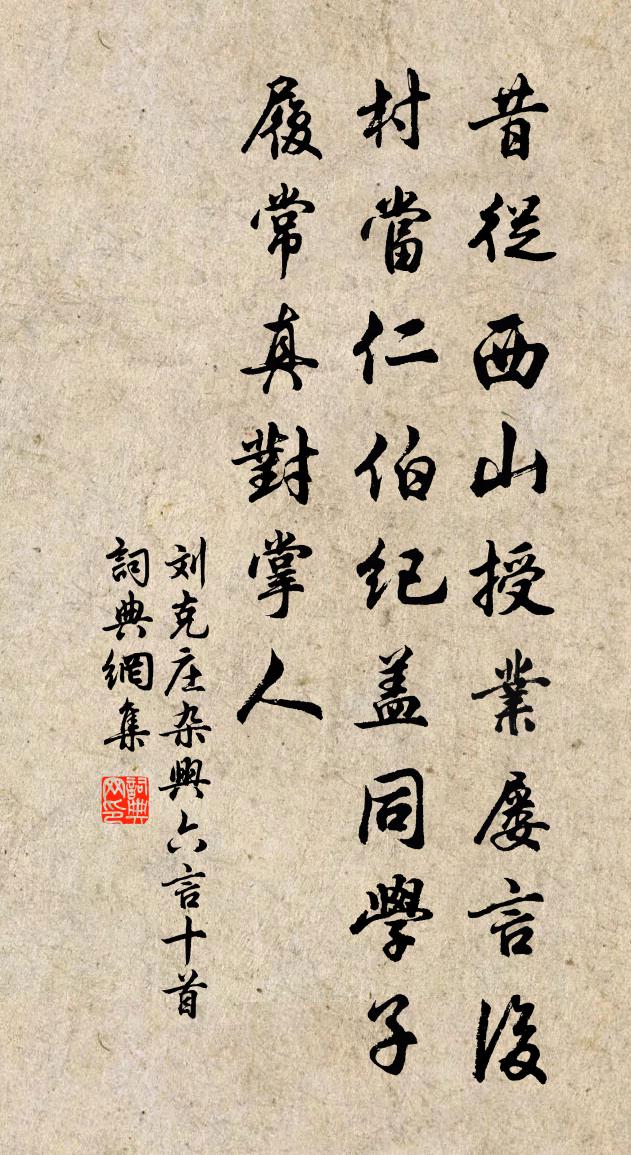 昔從西山授業屡言後
村當仁伯纪盖同學子
履常真對掌人
刘克庄杂興六言十首
詞典網集
詞典网印